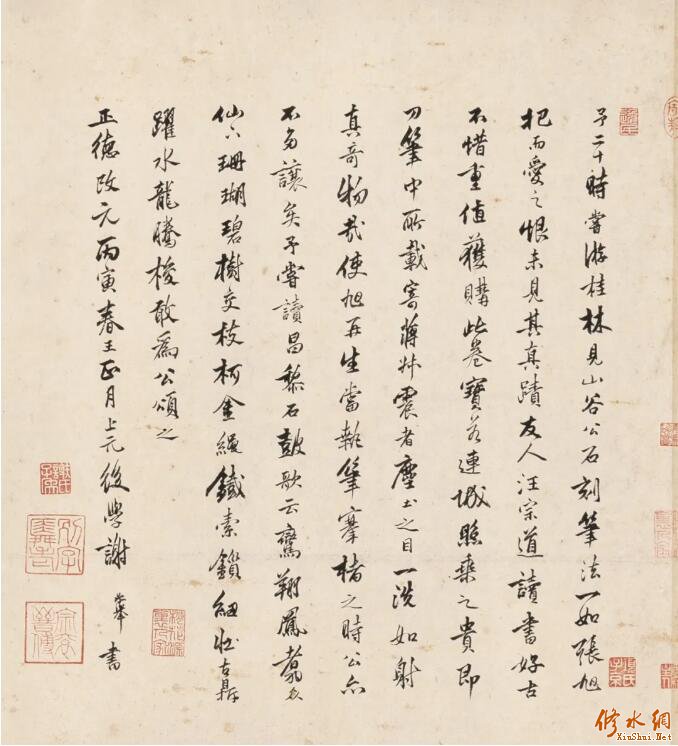 予二十時嘗游桂林見山谷公石刻筆法一如張旭
把而愛之恨未見其真蹟友人汪宗道讀書好古
不惜重值獲購此卷寶若連城照乗之貴即
刀筆中所載寄蔣草震者塵土之目一洗如射
真奇物哉使旭再生當執筆摹楮之時公亦
不多讓矣予嘗讀昌黎石鼓歌云鸞翔鳳翥众
仙下珊瑚碧樹交枝柯金繩鐵索鎖紐壯古鼎
躍水龍騰梭敢為公頌之
正德改元丙寅春王正月上元後學謝
書
修水網
XiuShui.Net